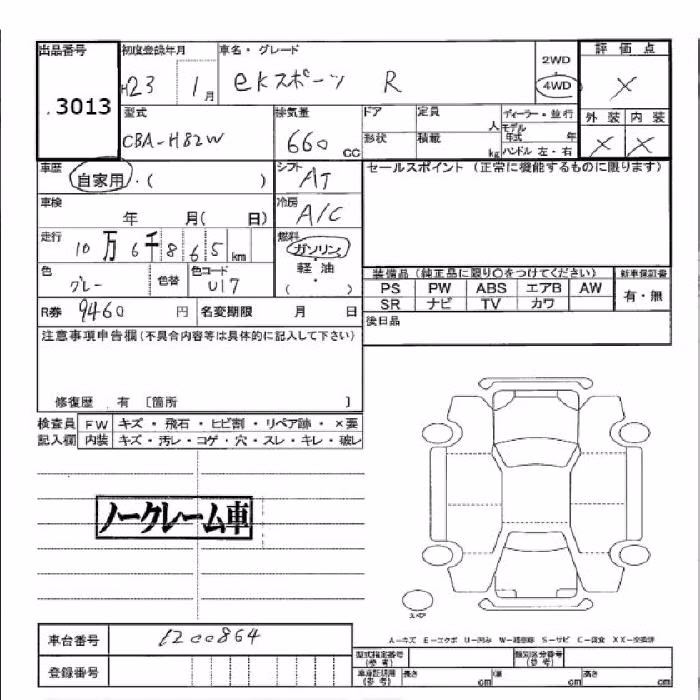 出品番号 初度登録年月 車名・グレード 評価点
3013 H23 1月 eKスポーツ R 2WD 4WD X
型式 排気量 ドア 定員 人 ディーラー・並行 外装 内装
CBA-H82W 660cc 形状 積載 kg モデル年式 年 X X
ハンドル 左・右
車歴 自家用・( ) シフト AT セールスポイント (正常に機能するものに限ります)
車検 年 月( 日) 冷房 A/C
走行 10万6千865km 燃料 ガソリン・軽油・( )
色 グレー 色替 色コード U17 装備品(純正品に限り○をつけてください) 新車保証書
PS PW ABS エアB AW 有・無
SR ナビ TV カワ
R券 9460円 名変期限 月 日 後日品
注意事項申告欄(不具合内容等は具体的に記入して下さい)
修復歴 有 〔箇所 〕
検査員記入欄 FW キズ・飛石・ヒビ割・リペア跡・×要
内装 キズ・汚レ・コゲ・穴・スレ・キレ・破レ
ノークレーム車
スペア
A-キズ E-エクボ U-凹み W-補修跡 S-サビ C-腐食 XX-交換済
車台番号 1200864 型式指定番号(参考) 類別区分番号(参考)
登録番号 車庫証明用(参考) 長さ cm 幅 cm 高さ cm